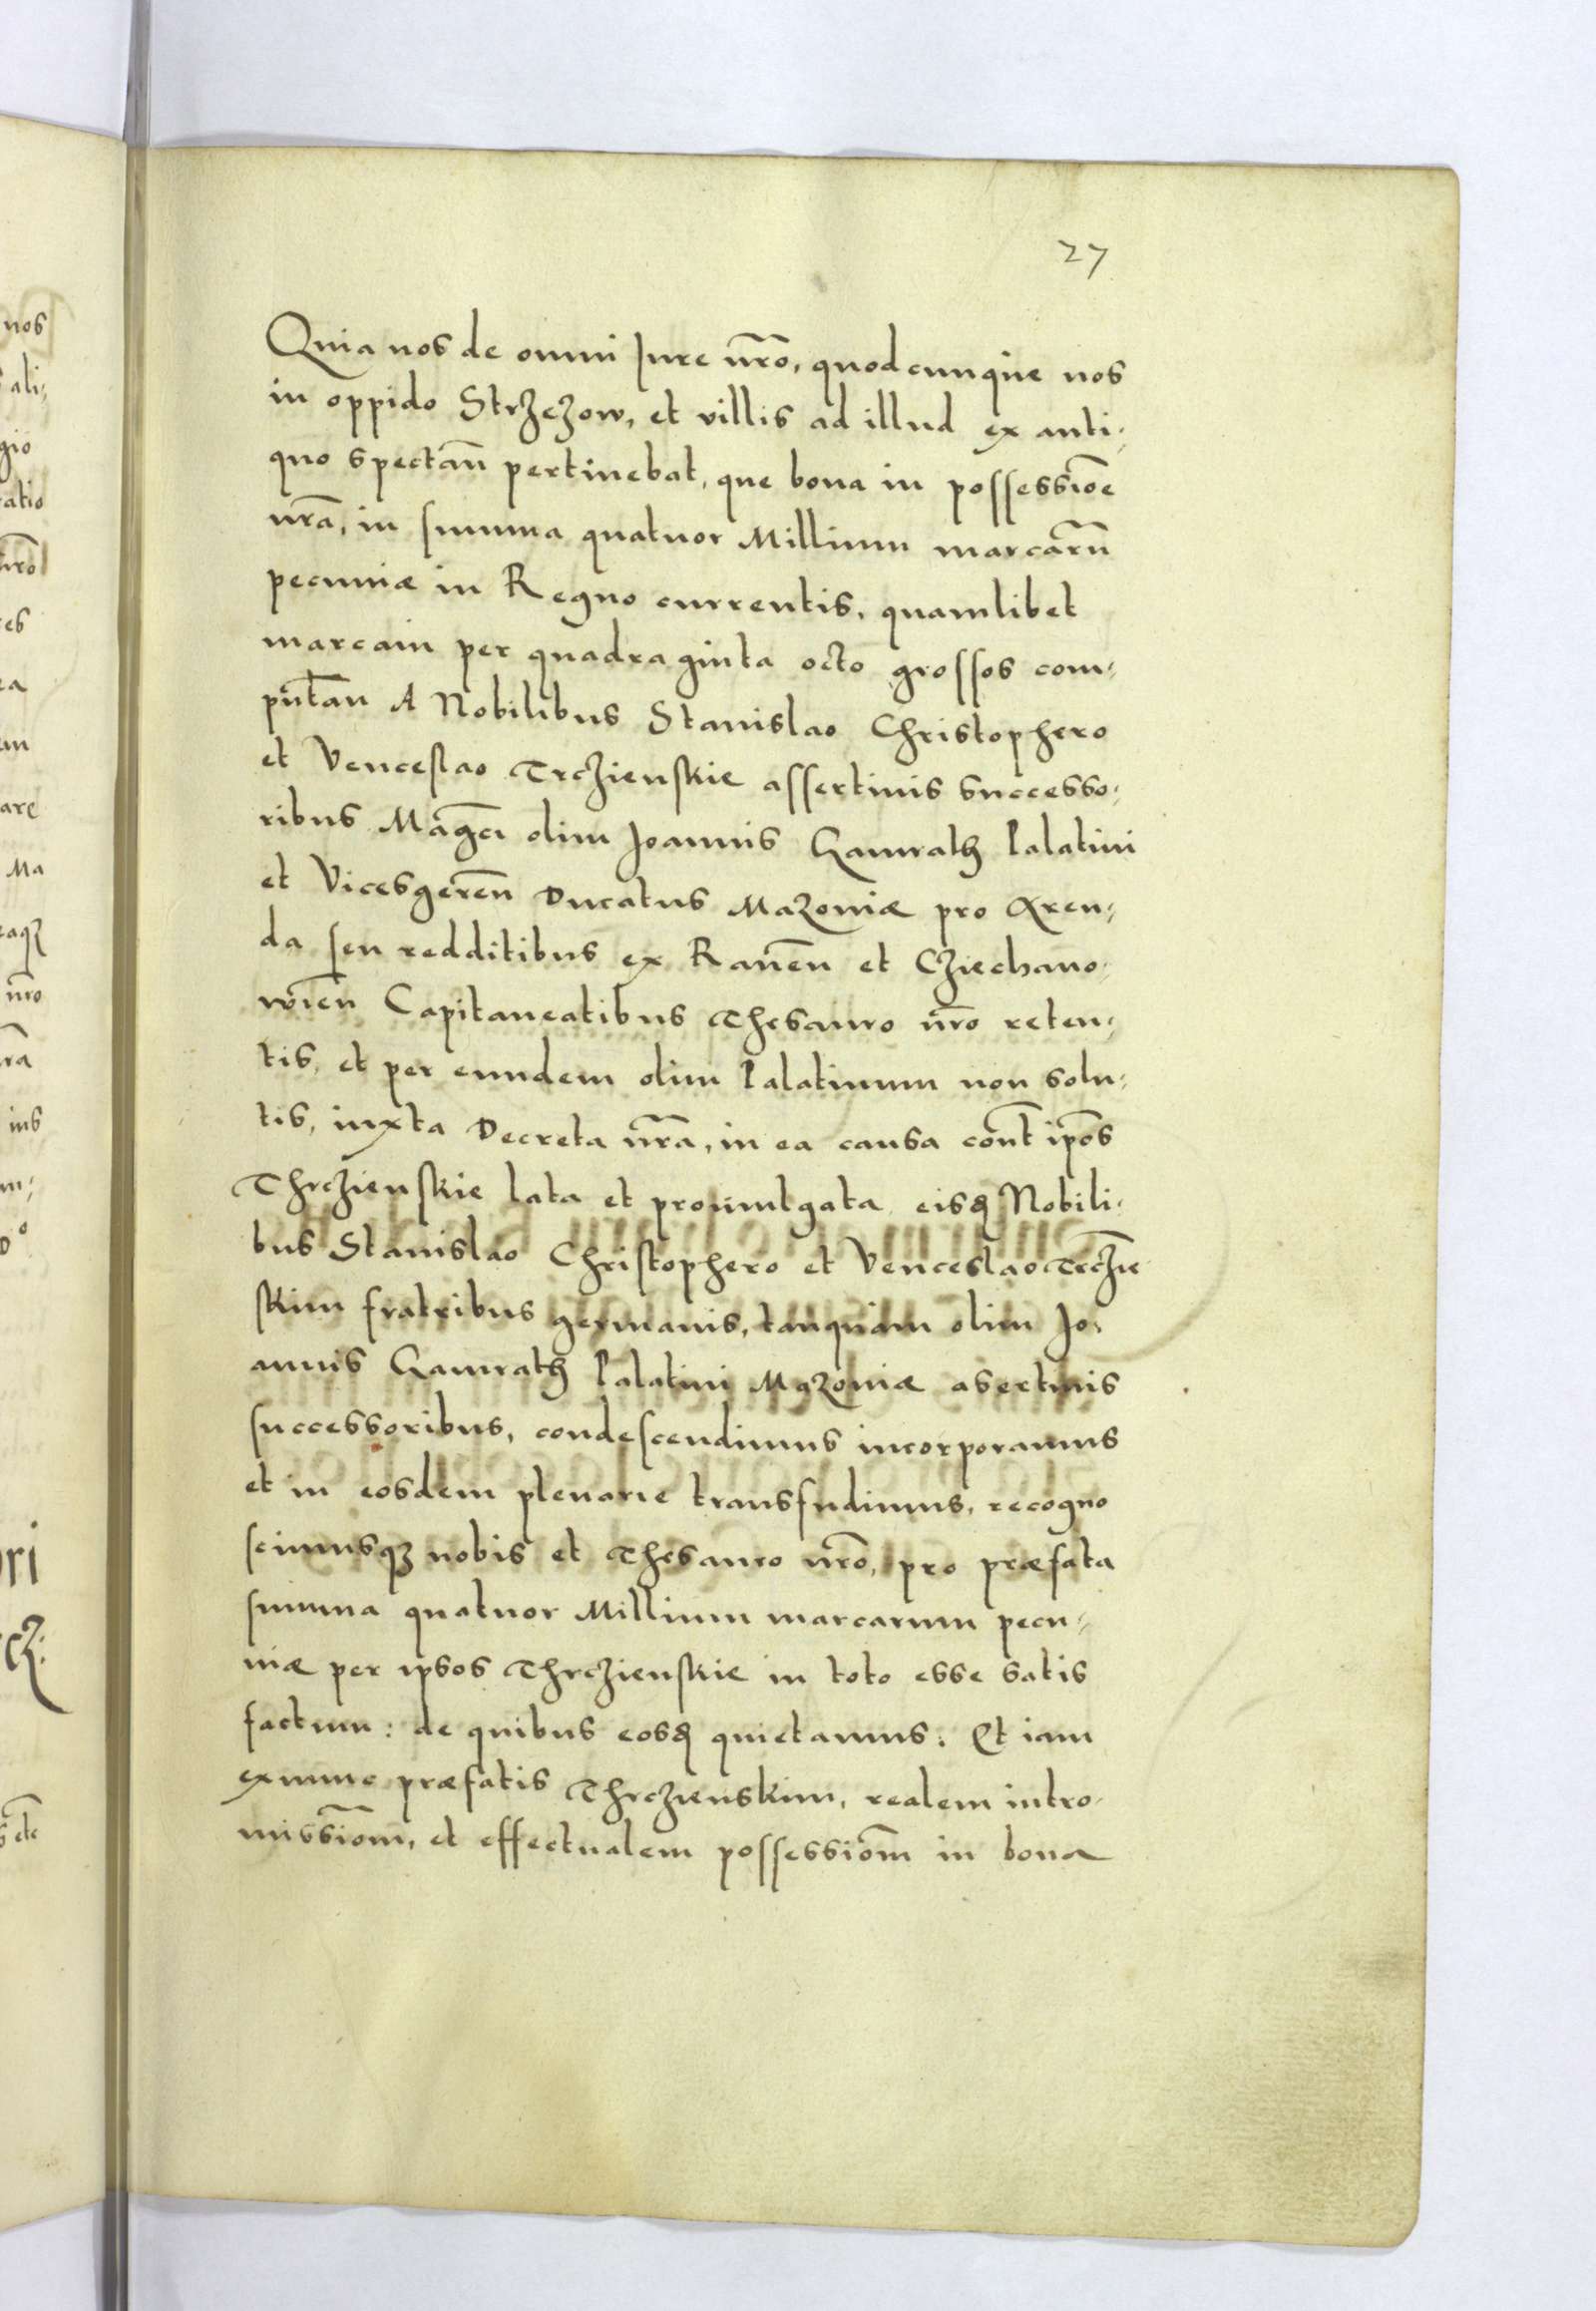 27
Quia nos de omni Iure nr̃o, quodcunque nos
in oppido Strzezow, et villis ad illud ex anti-
quo spectañ pertinebat, que bona in possessiõe
nr̃a, in summa quatuor Millium marcarũ
pecuniæ in Regno currentis, quamlibet
marcam per quadraginta octo grossos com-
putãn A Nobilibus Stanislao Christophero
et Venceslao Trczienskie assertivis successo-
ribus Magci olim Joannis Gamrath Palatini
et Vicesgereñ Ducatus Mazoviæ pro Aren-
da seu redditibus ex Raveñ et Cziechano-
wieñ Capitaneatibus Thesauro nr̃o reten-
tis, et per eundem olim Palatinum non solu-
tis, iuxta Decreta nr̃a, in ea causa cont̃ ipõs
Thrczienskie lata et promulgata eisꝗ Nobili-
bus Stanislao Christophero et Venceslao Trcziẽ
skim fratribus germanis, tanquam olim Jo-
annis Gamrath Palatini Mazoviæ asertivis
successoribus, condescendimus incorporamus
et in eosdem plenarie transfudimus, recogno
scimusqꝫ nobis et Thesauro nr̃o, pro præfata
summa quatuor Millium marcarum pecu-
niæ per ipsos Thrczienskie in toto esse satis
factum: de quibus eosꝗ quietamus. Et iam
exnunc præfatis Thrczienskim, realem intro-
missiõm, et effectualem possessiõm in bona
nos
ali-
gio
ratio
nr̃o
Ma
nr̃o
etc